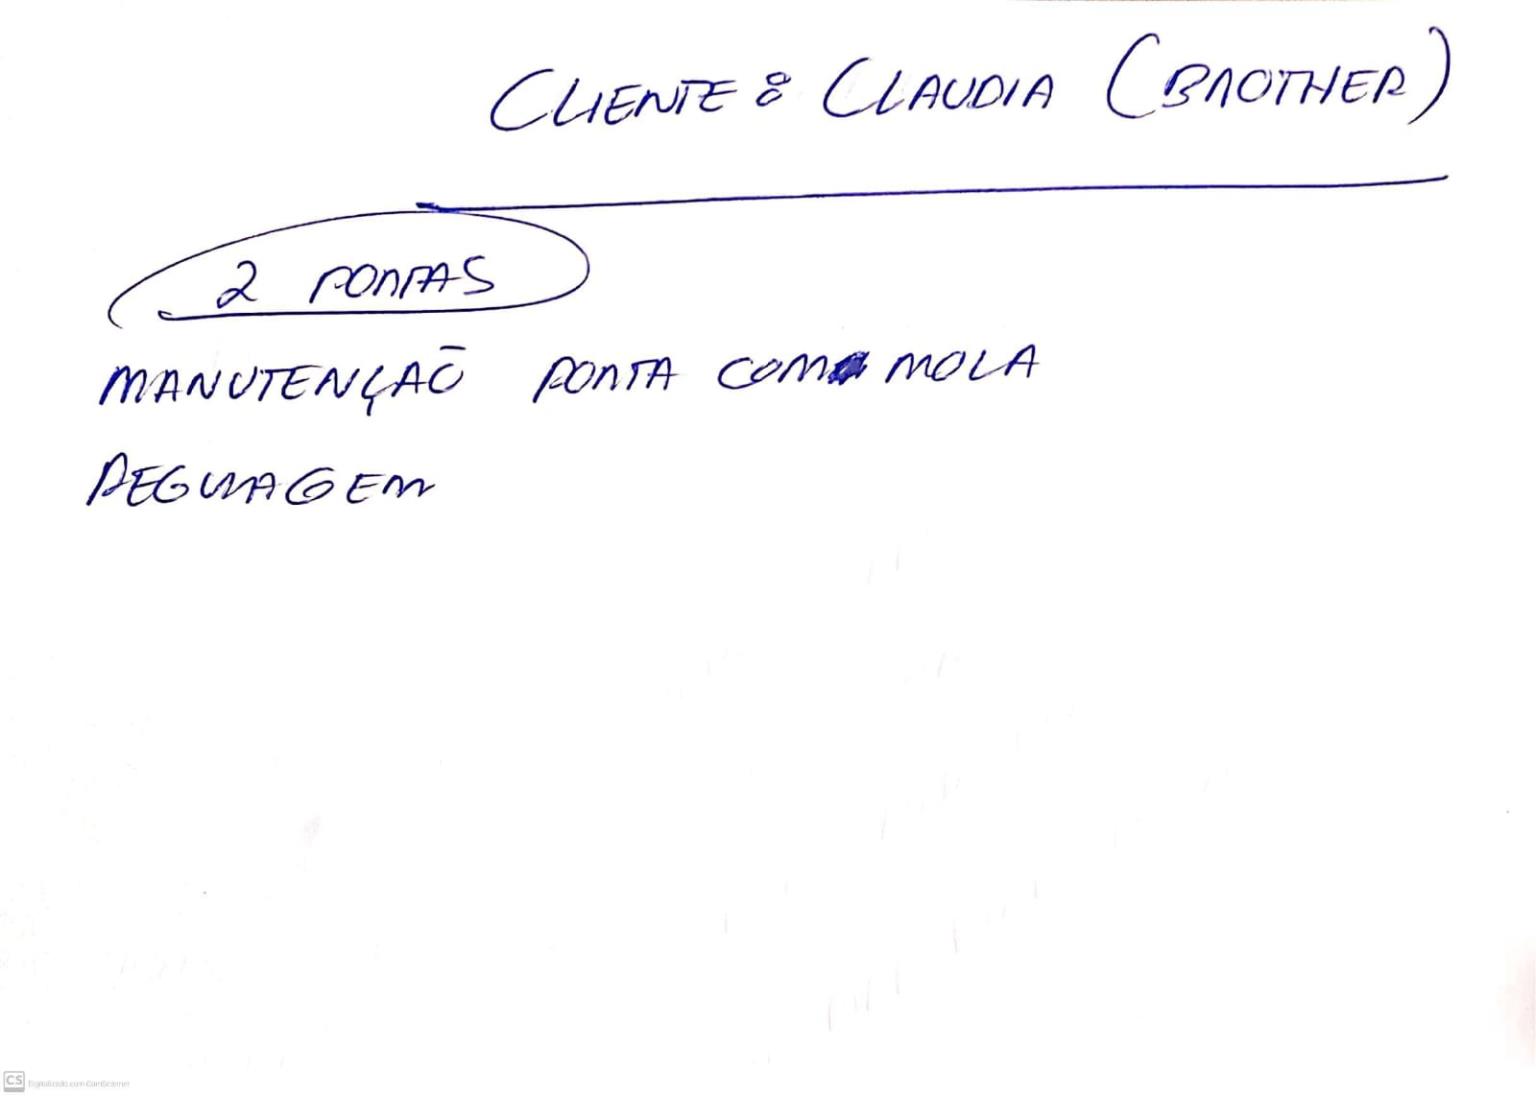 CLIENTE: CLAUDIA (BROTHER)
2 PONTAS
MANUTENÇÃO PONTA COM MOLA
REGULAGEM
CS Digitalizado com CamScanner